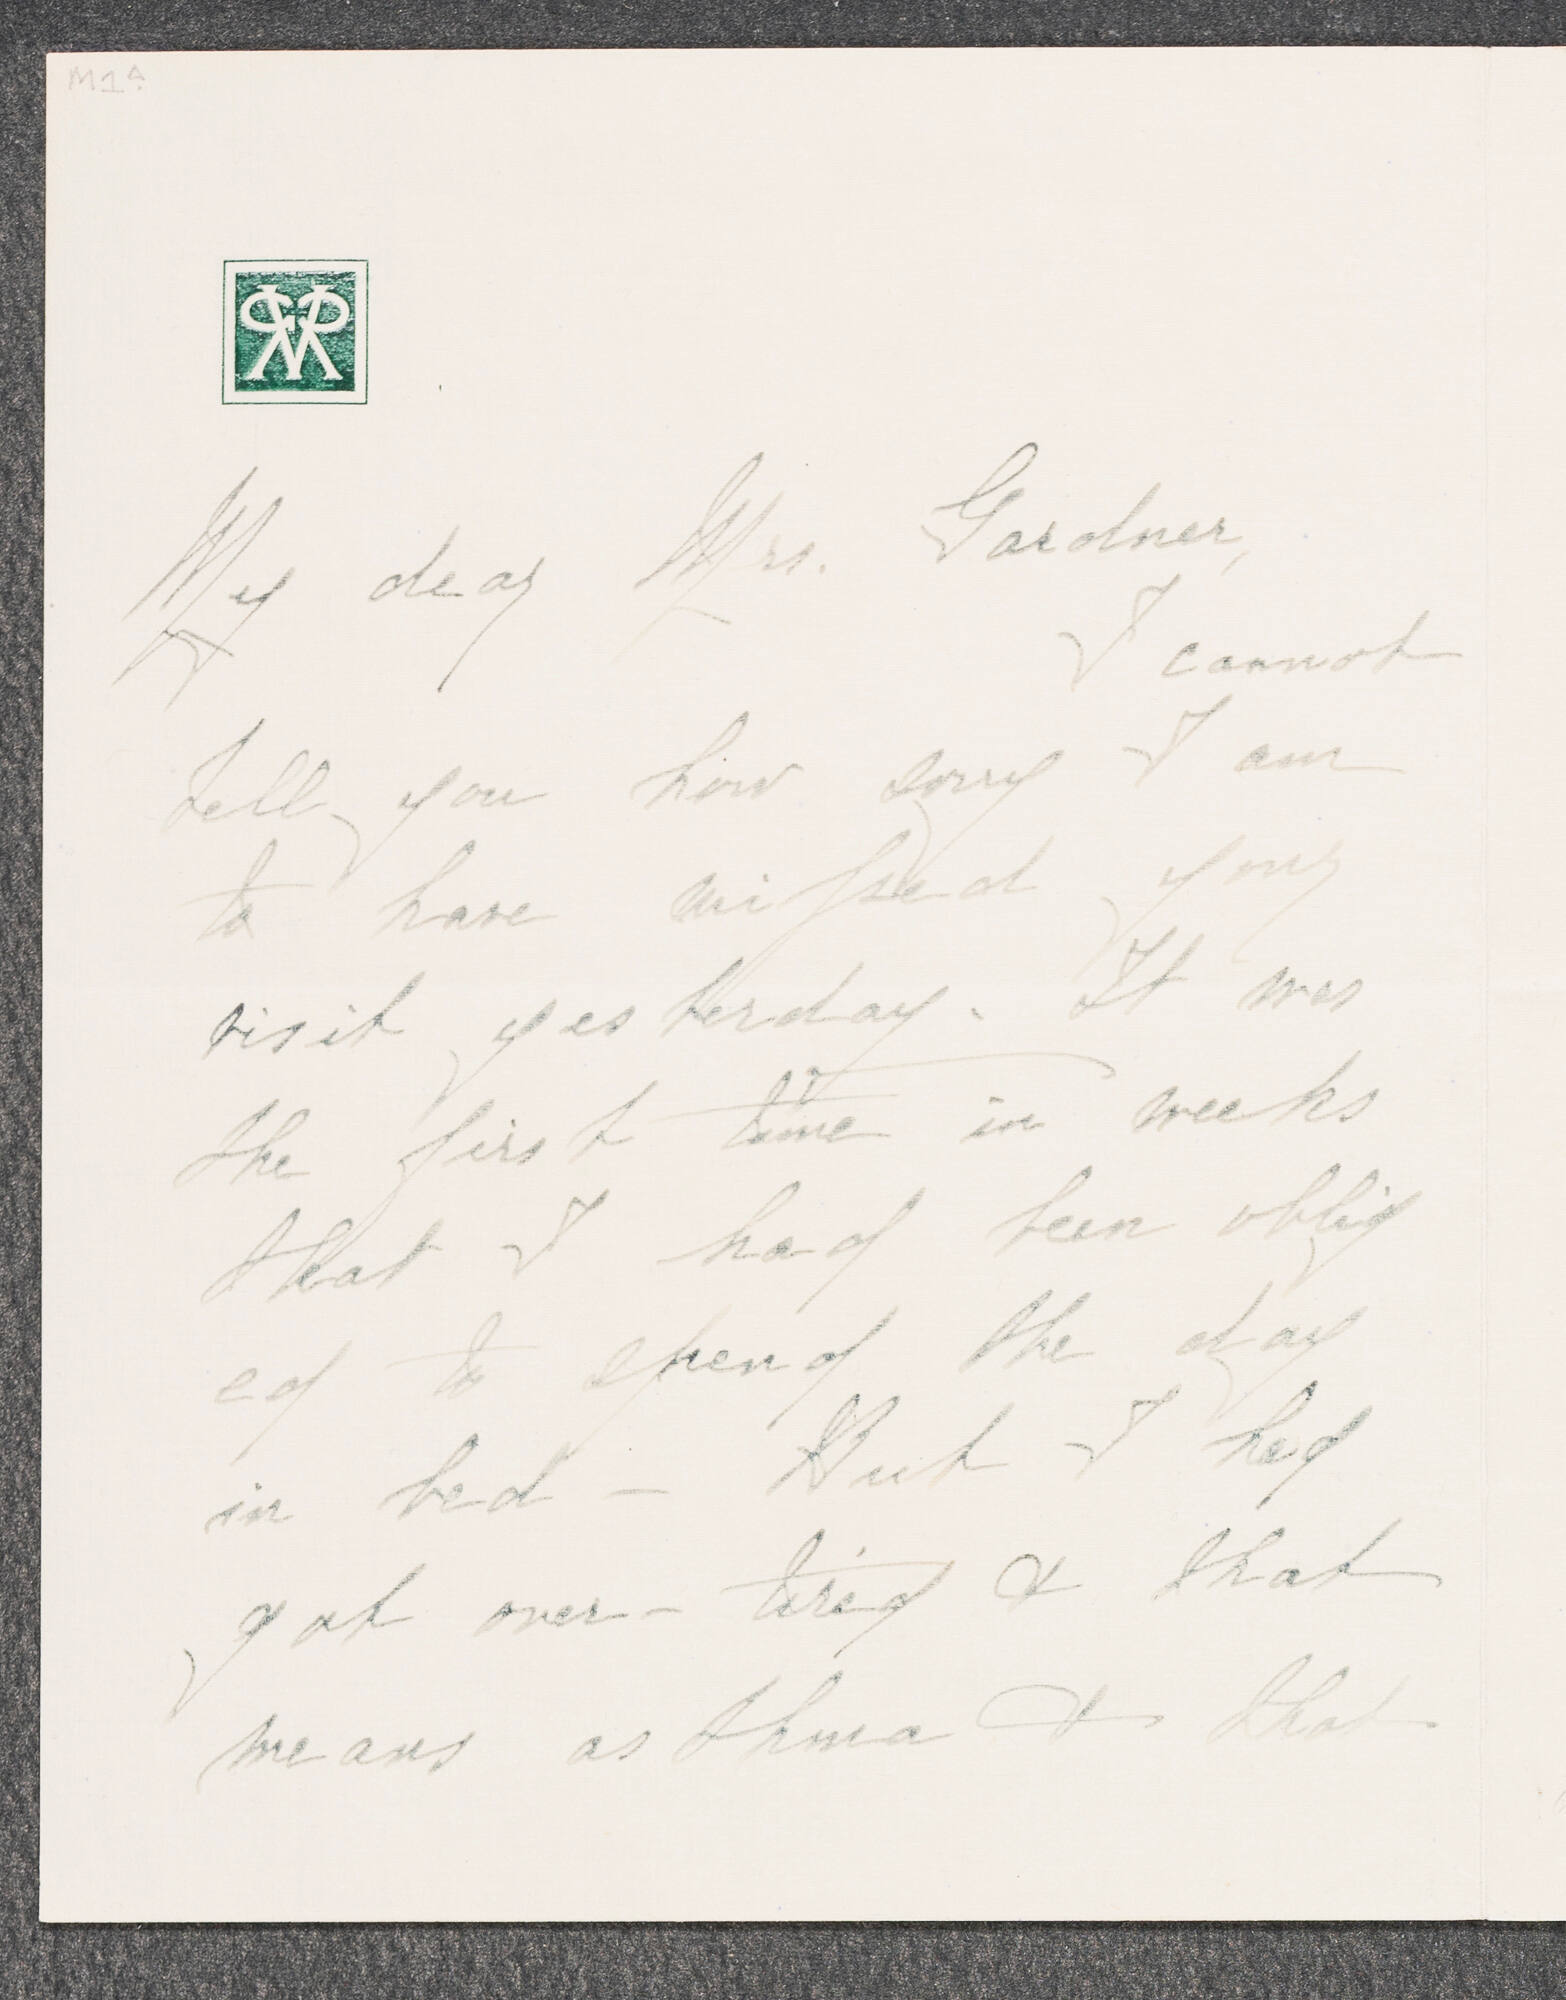 My dear Mrs. Gardner,
I cannot
tell you how sorry I am
to have missed your
visit yesterday. It was
the first time in weeks
that I had been oblig
ed to spend the day
in bed – But I had
got over-tired & that
means asthma & that